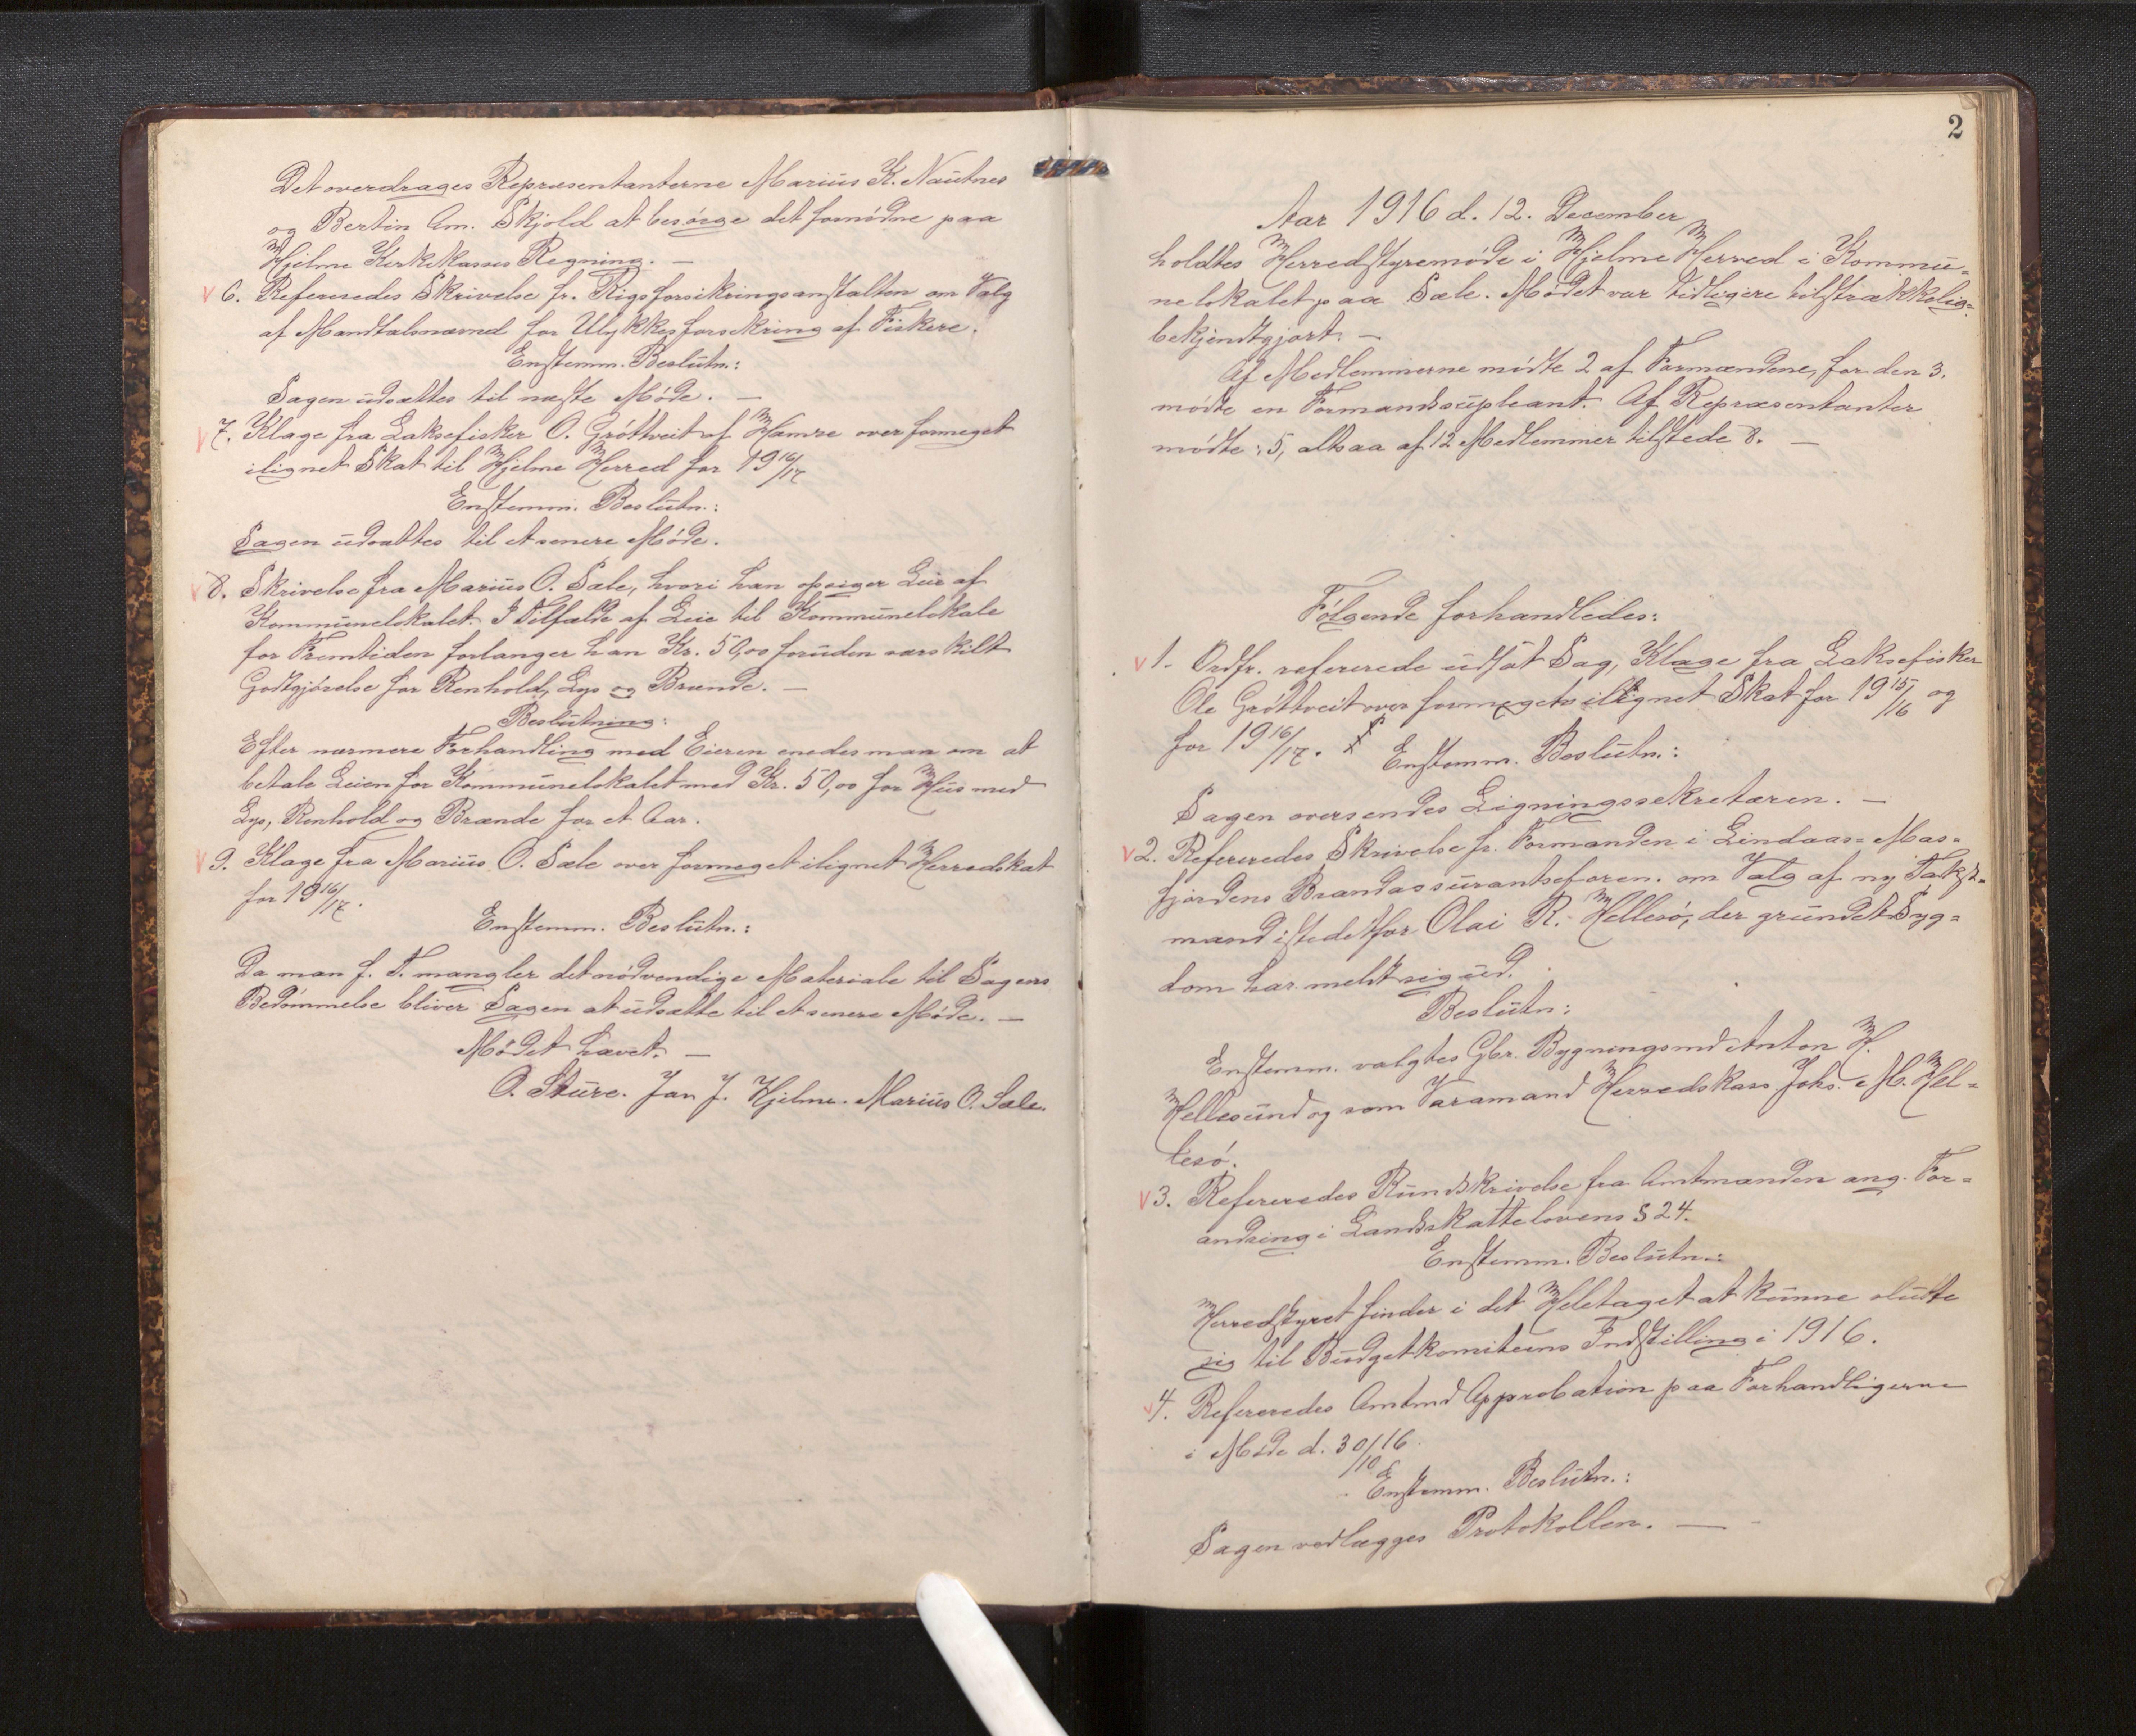 Det overdrages Repræsentanterne Marius K. Nautnes
og Bertin Am. Skjold at besørge det fornødne paa
Hjelme Kirkekasses Regning. —
6. Refereredes Skrivelse fr. Rigsforsikringsanstalten om Valg
af Mandtalsnævnd for Ulykkesforsekring af Fiskere.
Enstemm. Beslutn.:
Sagen udsættes til næste Møde. —
7. Klage fra Laksefisker O. Grøttveit af Hamre over formeget
ilignet Skat til Hjelme Herred for 1916/17
Enstemm. Beslutn.:
Sagen udsættes til et senere Møde.
8. Skrivelse fra Marius O. Sæle, hvori han opsiger Leie af
Kommunelokalet. I Tilfælde af Leie til Kommunelokale
for Fremtiden forlanger han Kr. 50,00 foruden særskilt
Godtgjørelse for Renhold, Lys og Brænde. —
Beslutning:
Efter nærmere Forhandling med Eieren enedes man om at
betale Leien for Kommunelokalet med Kr. 50,00 for Hus med
Lys, Renhold og Brænde for et Aar.
9. Klage fra Marius O. Sæle over formeget ilignet Herredskat
for 1916/17.
Enstemm. Beslutn.:
Da man f. T. mangler det nødvendige Materiale til Sagens
Bedømmelse bliver Sagen at udsætte til et senere Møde. —
Mødet hævet. —
O. Sture. Jan J. Hjelme. Marius O. Sæle.
2
Aar 1916 d. 12. December
holdtes Herredstyremøde i Hjelme Herred i Kommu=
nelokalet paa Sæle. Mødet var tidligere tilstrækkelig=
bekjendtgjort. —
Af Medlemmerne mødte 2 af Formændene, for den 3.
mødte en Formandssupleant. Af Repræsentanter
mødte: 5, altsaa af 12 Medlemmer tilstede 8. —
Følgende forhandledes:
1. Ordfr. refererede udsat Sag, Klage fra Laksefisker
Ole Grøttveit over formeget ilignet Skat for 1915/16 og
for 1916/17. Enstemm. Beslutn.:
Sagen oversendes Ligningssekretæren. —
2. Refereredes Skrivelse fr. Formanden i Lindaas= Mas=
fjordens Brandassurantseforen. om Valg af ny Takst=
mand istedetfor Olai R. Hellesø, der grundet Syg=
dom har meldt sig ud.
Beslutn:
Enstemm. valgtes Gbr. Bygningsmd Anton H.
Hellesund og som Varamand Herredskass Johs. M. Hel=
lesø.
3. Refereredes Rundskrivelse fra Amtmanden ang. For=
andring i Landsskattelovens § 24.
Enstemm. Beslutn.:
Herredstyret finder i det Heletaget at kunne slutte
sig til Budgetkomiteens Indstilling i 1916.
4. Refereredes Amtmd Approbation paa Forhandligerne
i Møde d. 30/10 16.
Enstemm. Beslutn.:
Sagen vedlægges Protokollen. —